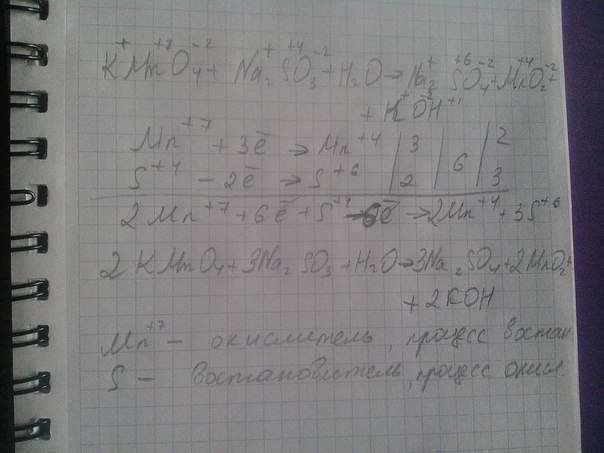 K⁺Mn⁺⁷O₄⁻² + Na₂⁺S⁺⁴O₃⁻² + H₂O → Na₂⁺S⁺⁶O₄⁻² + Mn⁺⁴O₂⁻² +
+ K⁺O⁻²H⁺¹
Mn⁺⁷ + 3ē → Mn⁺⁴ | 3 | 6 | 2
S⁺⁴ - 2ē → S⁺⁶ | 2 | | 3
2Mn⁺⁷ + 6ē + S⁺⁴ - 6ē → 2Mn⁺⁴ + 3S⁺⁶
2KMnO₄ + 3Na₂SO₃ + H₂O → 3Na₂SO₄ + 2MnO₂ +
+ 2KOH
Mn⁺⁷ - окислитель, процесс востан
S - востановитель, процесс окисл